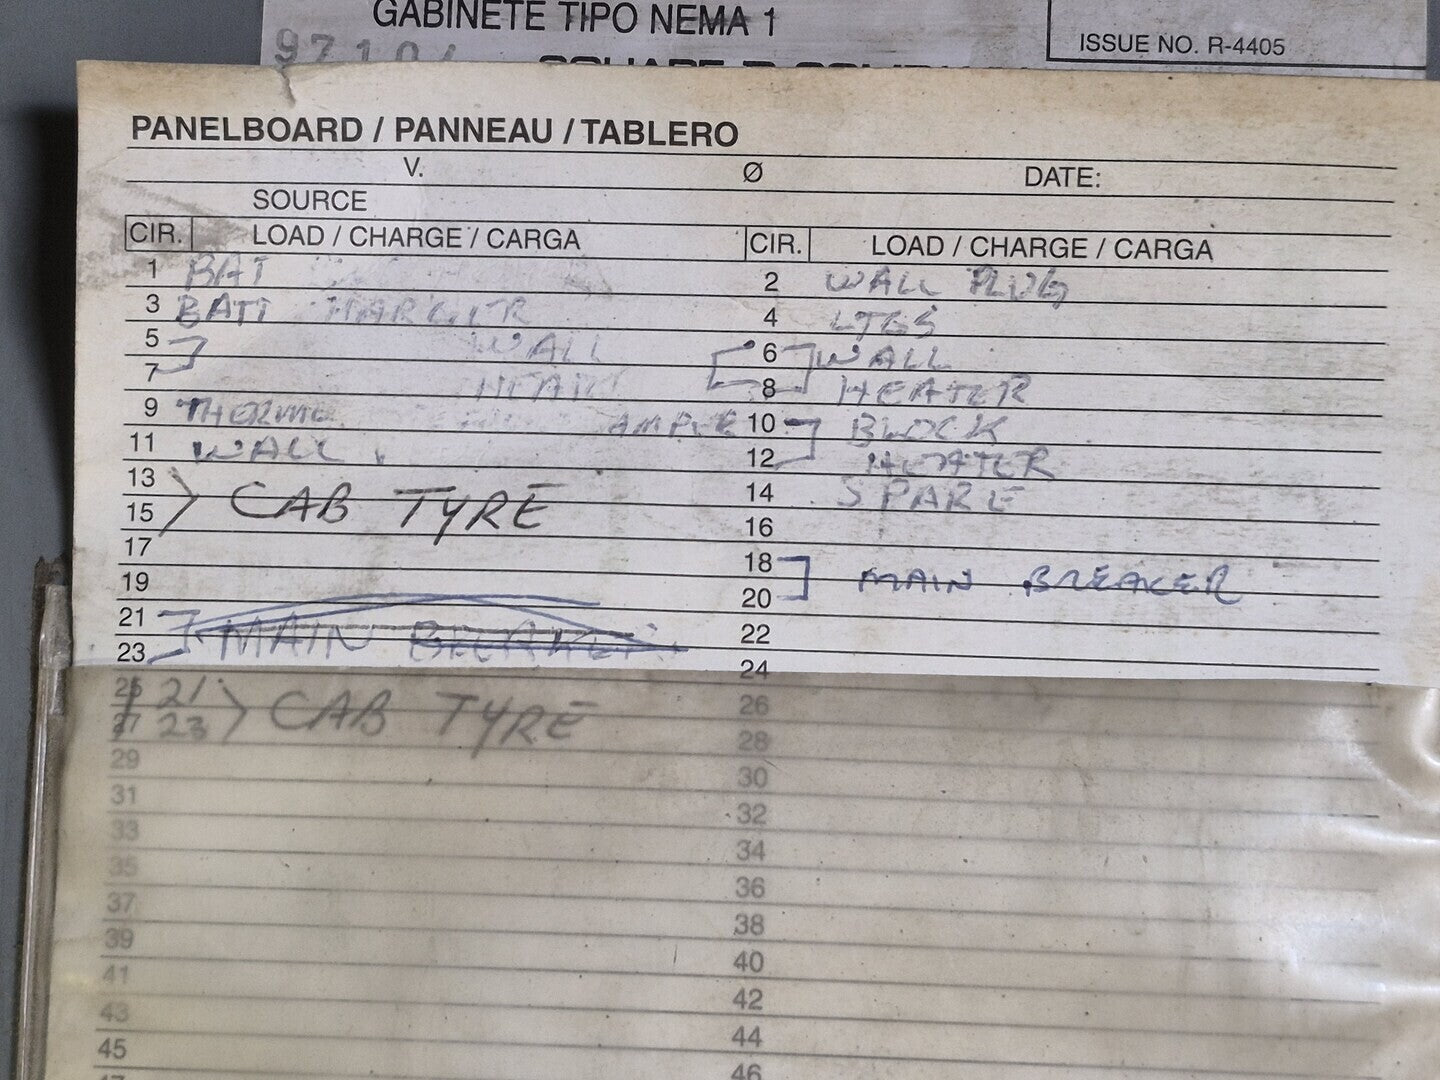 GABINETE TIPO NEMA 1
ISSUE NO. R-4405
PANELBOARD / PANNEAU / TABLERO
V. Ø DATE:
SOURCE
CIR. LOAD / CHARGE / CARGA CIR. LOAD / CHARGE / CARGA
1 BAT 2 WALL PLUG
3 BATT 4 LTGS
5 WALL 6 WALL
7 8 HEATER
9 10 BLOCK
11 WALL 12 HEATER
13 14 SPARE
CAB TYRE
15 16
17 18
MAIN BREAKER
19 20
21 22
MAIN BREAKER
23 24
25 21 26
CAB TYRE
27 23 28
29 30
31 32
33 34
35 36
37 38
39 40
41 42
43 44
45 46